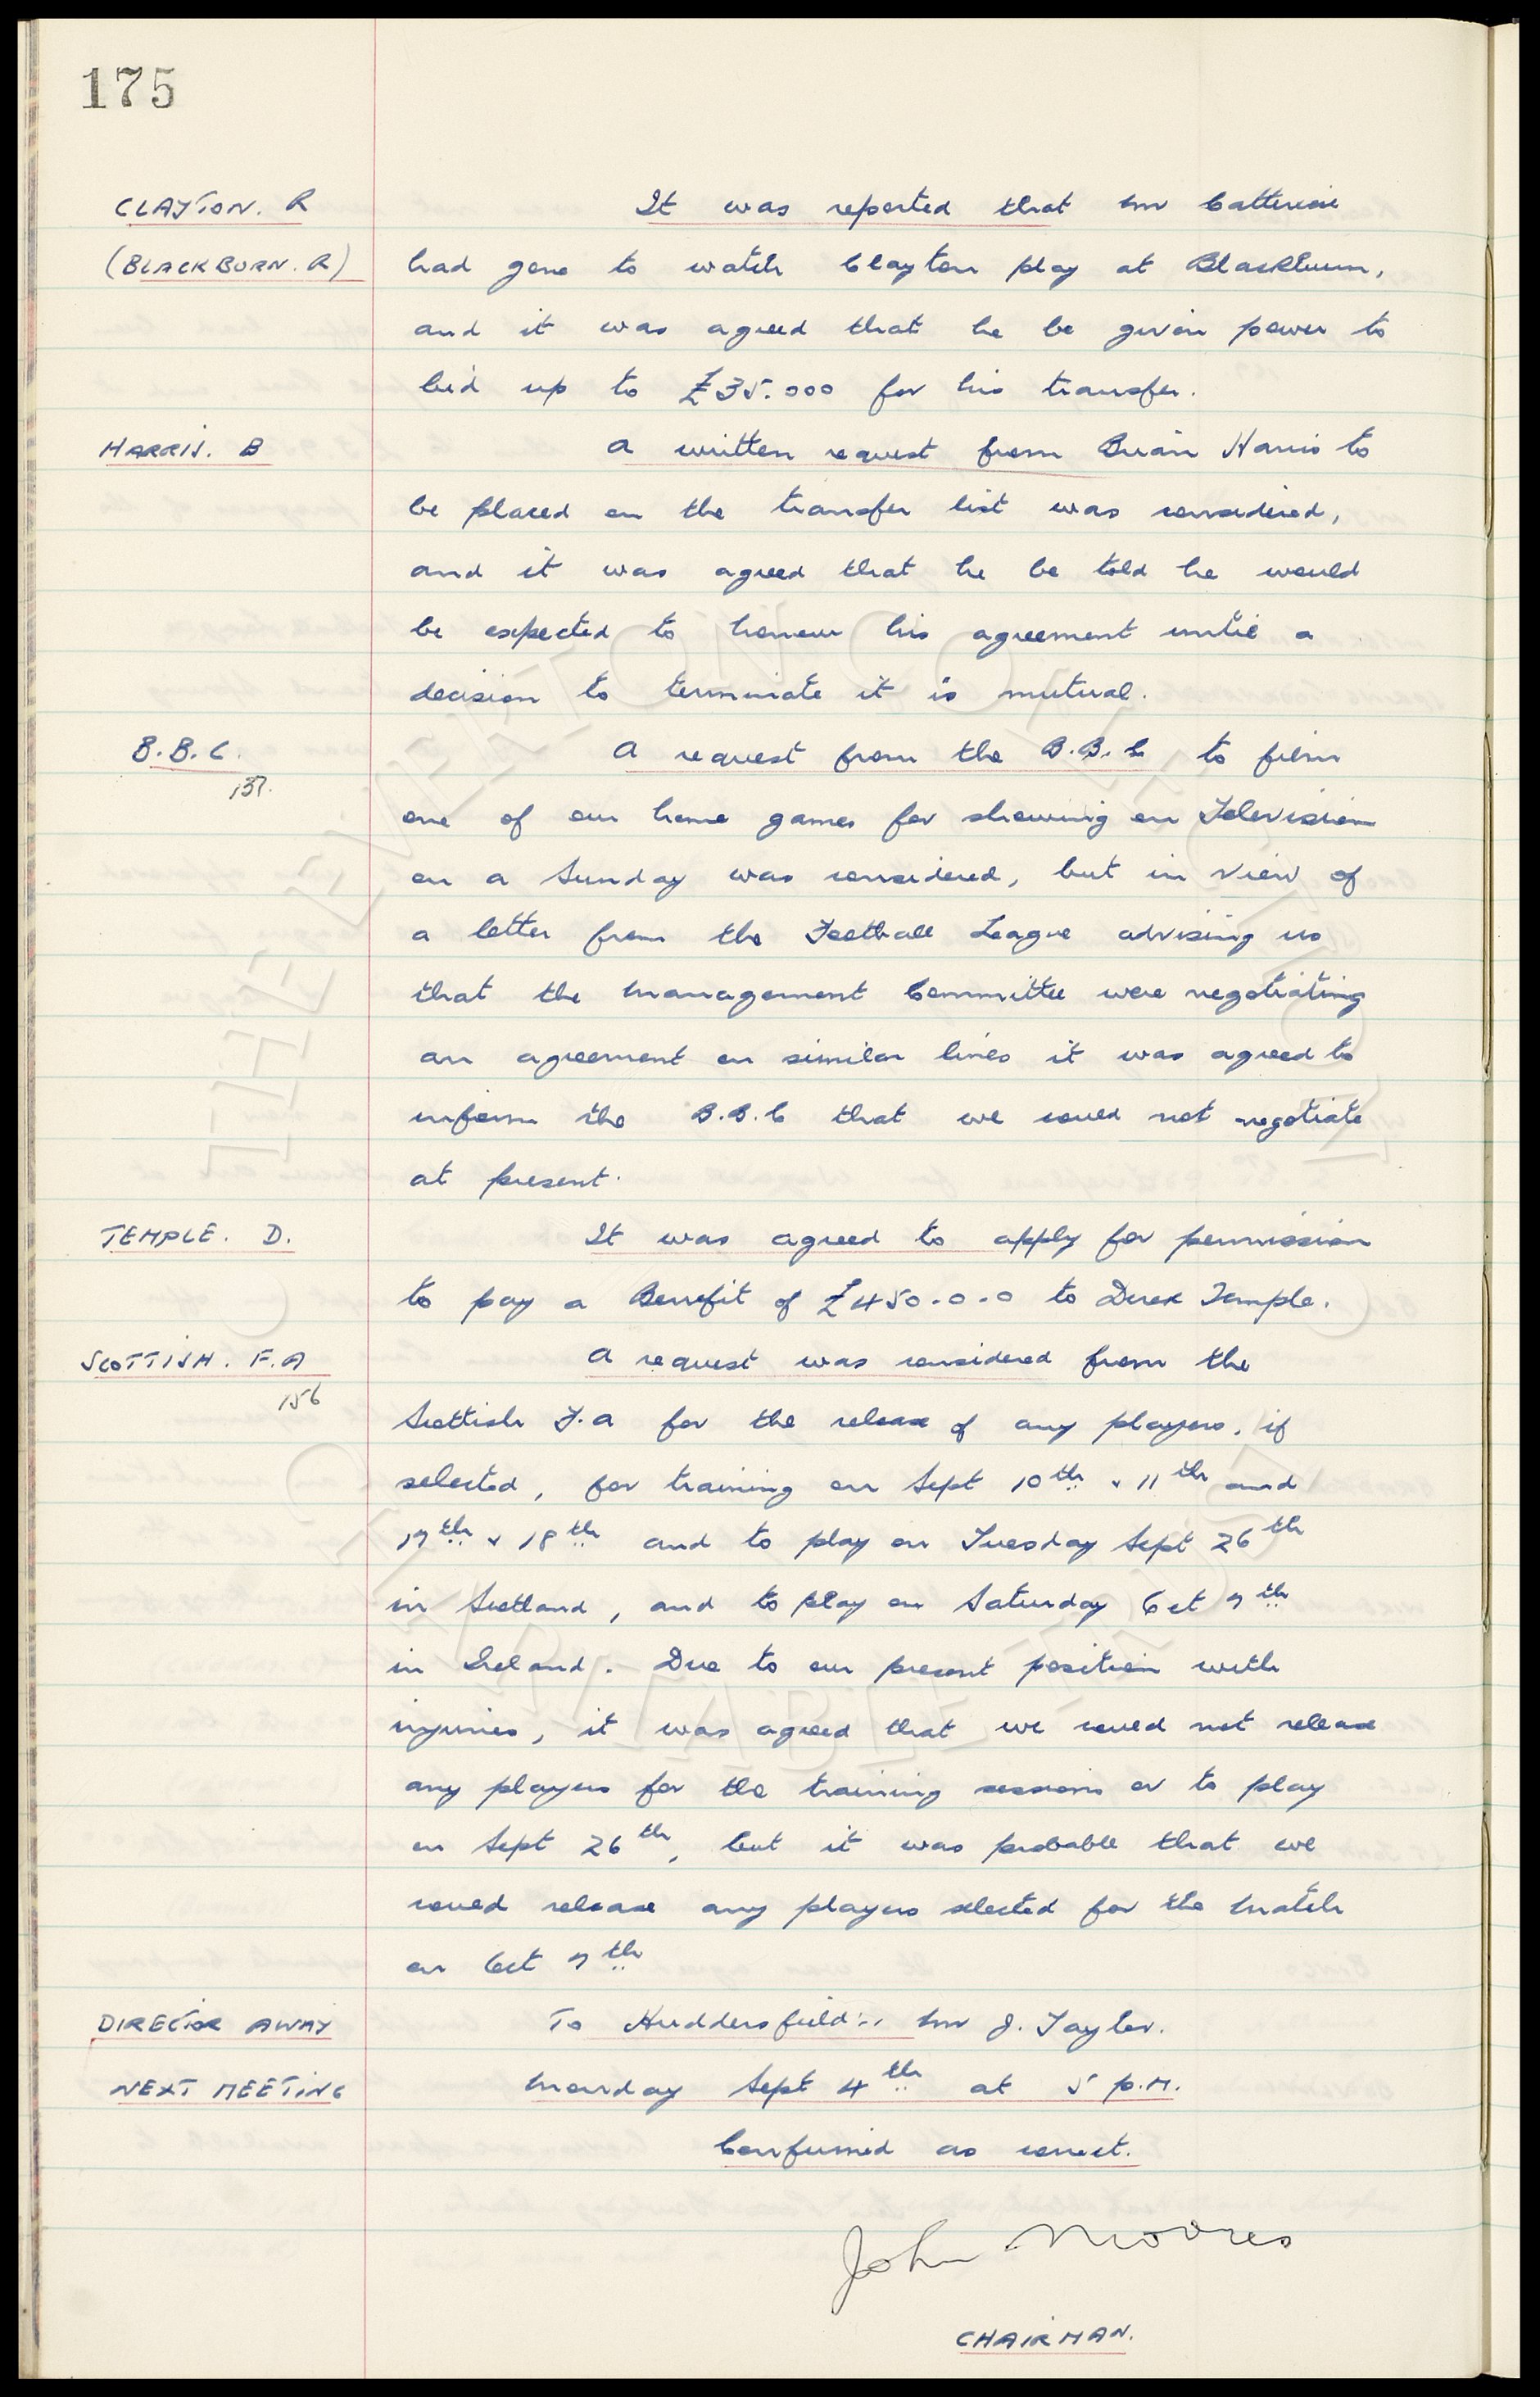 175
CLAYTON. R It was reported that Mr Catterick
(BLACKBURN. R) had gone to watch Clayton play at Blackburn,
and it was agreed that he be given power to
bid up to £35.000 for his transfer.
HARRIS. B A written request from Brian Harris to
be placed on the transfer list was considered,
and it was agreed that he be told he would
be expected to honour his agreement until a
decision to terminate it is mutual.
B.B.C. A request from the B.B.C to film
137.
one of our home games for showing on Television
on a Sunday was considered, but in view of
a letter from the Football League advising us
that the Management Committee were negotiating
an agreement on similar lines it was agreed to
inform the B.B.C that we could not negotiate
at present.
TEMPLE. D. It was agreed to apply for permission
to pay a Benefit of £450-0-0 to Derek Temple.
SCOTTISH. F.A A request was considered from the
156
Scottish F.A for the release of any players, if
selected, for training on Sept 10th & 11th and
17th & 18th and to play on Tuesday Sept 26th
in Scotland, and to play on Saturday Oct 7th
in Ireland. Due to our present position with
injuries, it was agreed that we could not release
any players for the training sessions or to play
on Sept 26th, but it was probable that we
could release any players selected for the match
on Oct 7th
DIRECTOR AWAY To Huddersfield:- Mr J. Taylor.
NEXT MEETING Monday Sept 4th at 5 p.m.
Confirmed as correct.
John Moores
CHAIRMAN.